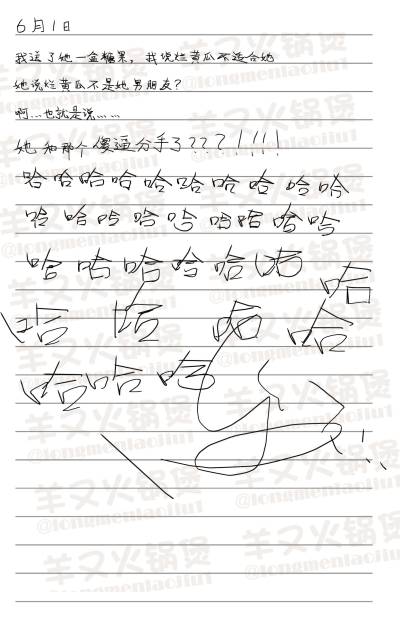 6月1日
我送了她一盒糖果，我说烂黄瓜不适合她
她说烂黄瓜不是她男朋友？
啊...也就是说......
她和那个傻逼分手了？？？！！！！
哈哈哈哈哈哈哈哈哈哈
哈哈哈哈哈哈哈哈哈
哈哈哈哈哈哈
哈
哈哈哈哈
哈哈哈
羊又火锅煲
@longmenlaojiu1